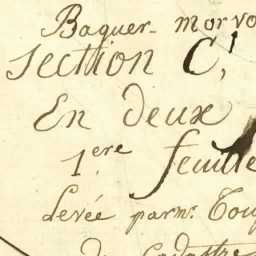 Baguer- morvo
Section C,
En deux
1.ere feuille
Levée par mr.
du Cadastre